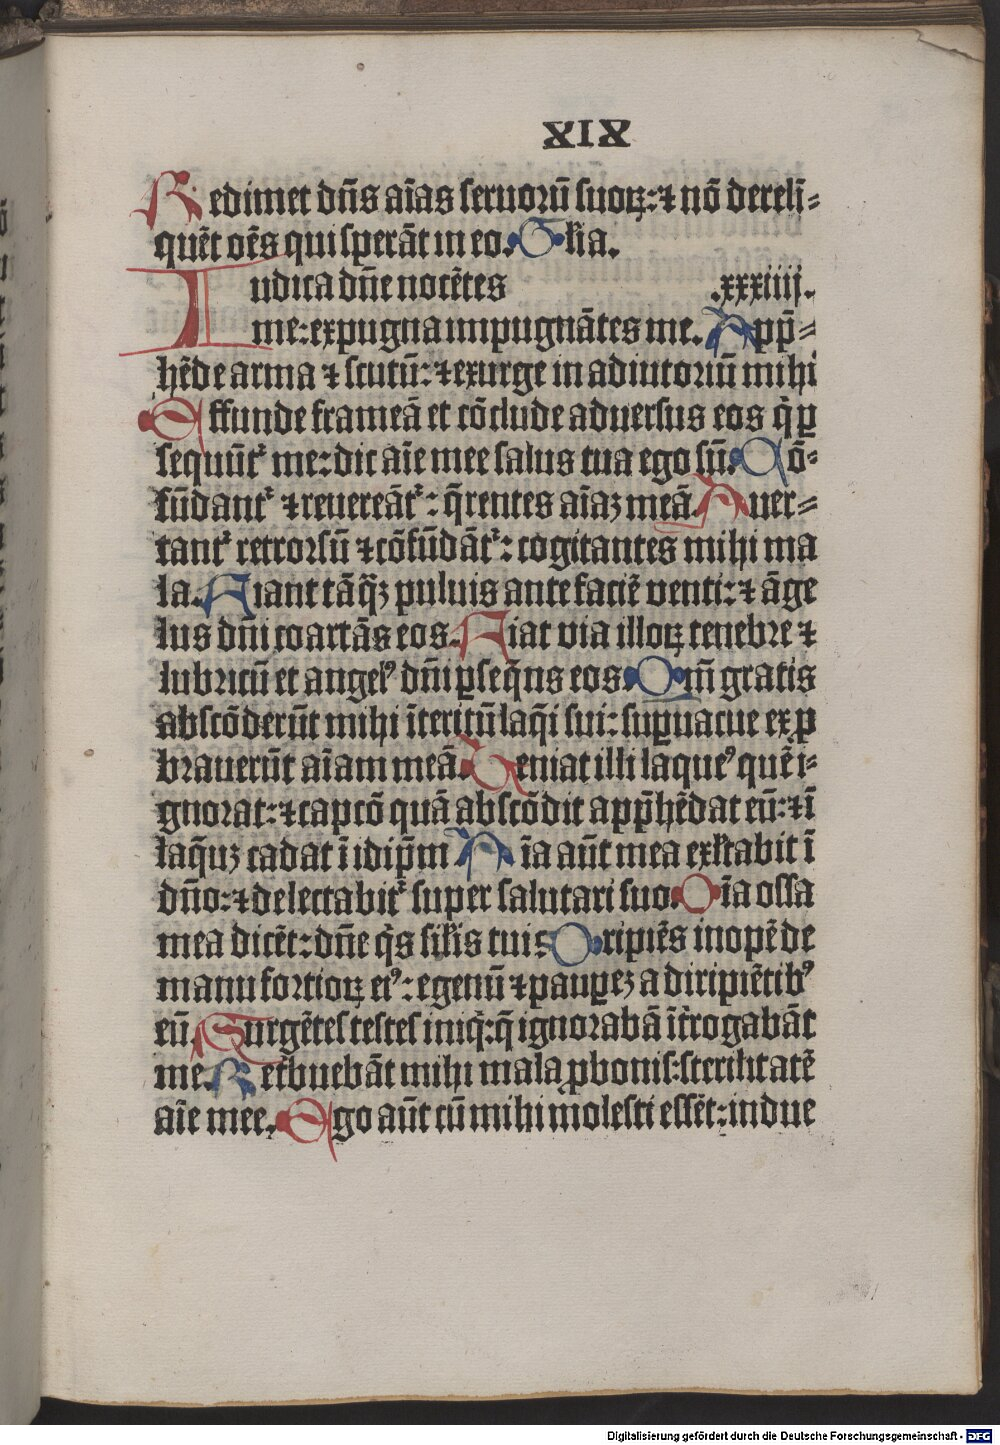 XIX
Redimet dn̄s aīas seruorū suoꝝ: ⁊ nō dereli-
quēt oēs qui sperāt in eo. Gl̄ia.
Iudica dn̄e nocētes .xxxiiij.
me: expugna impugnātes me. App̄-
hēde arma ⁊ scutū: ⁊ exurge in adiutoriū mihi
Effunde frameā et cōclude aduersus eos q̄ ꝑ
sequūt᷑ me: dic aīe mee salus tua ego sū. Cō-
fūdant᷑ ⁊ reuereāt᷑: q̄rentes aīaꝫ meā. Auer-
tant᷑ retrorsū ⁊ cōfūdāt᷑: cogitantes mihi ma
la. Fiant tāq̄ꝫ puluis ante faciē venti: ⁊ āge
lus dn̄i coartās eos. Fiat via illoꝝ tenebre ⁊
lubricū et angelꝰ dn̄i ꝑseq̄ns eos. Qm̄ gratis
abscōderūt mihi īteritū laq̄i sui: suꝑuacue exp̱
brauerūt aīam meā. Veniat illi laqueꝰ quē i-
gnorat: ⁊ captō quā abscōdit app̄hēdat eū: ⁊ ī
laq̄uꝫ cadat ī idip̄m Aīa aūt mea exl̄tabit ī
dn̄o: ⁊ delectabit᷑ super salutari suo. Oīa ossa
mea dicēt: dn̄e q̄s sil̄is tui: Oripiēs inopē de
manu fortioꝝ eiꝰ: egenū ⁊ pauꝑeꝫ a diripiētibꝰ
eū. Surgētes testes iniq̄: q̄ ignorabā īt̄rogabāt
me. Ret̄buebāt mihi mala ꝓ bonis: sterilitatē
aīe mee. Ego aūt cū mihi molesti essēt: indue
Digitalisierung gefördert durch die Deutsche Forschungsgemeinschaft - DFG